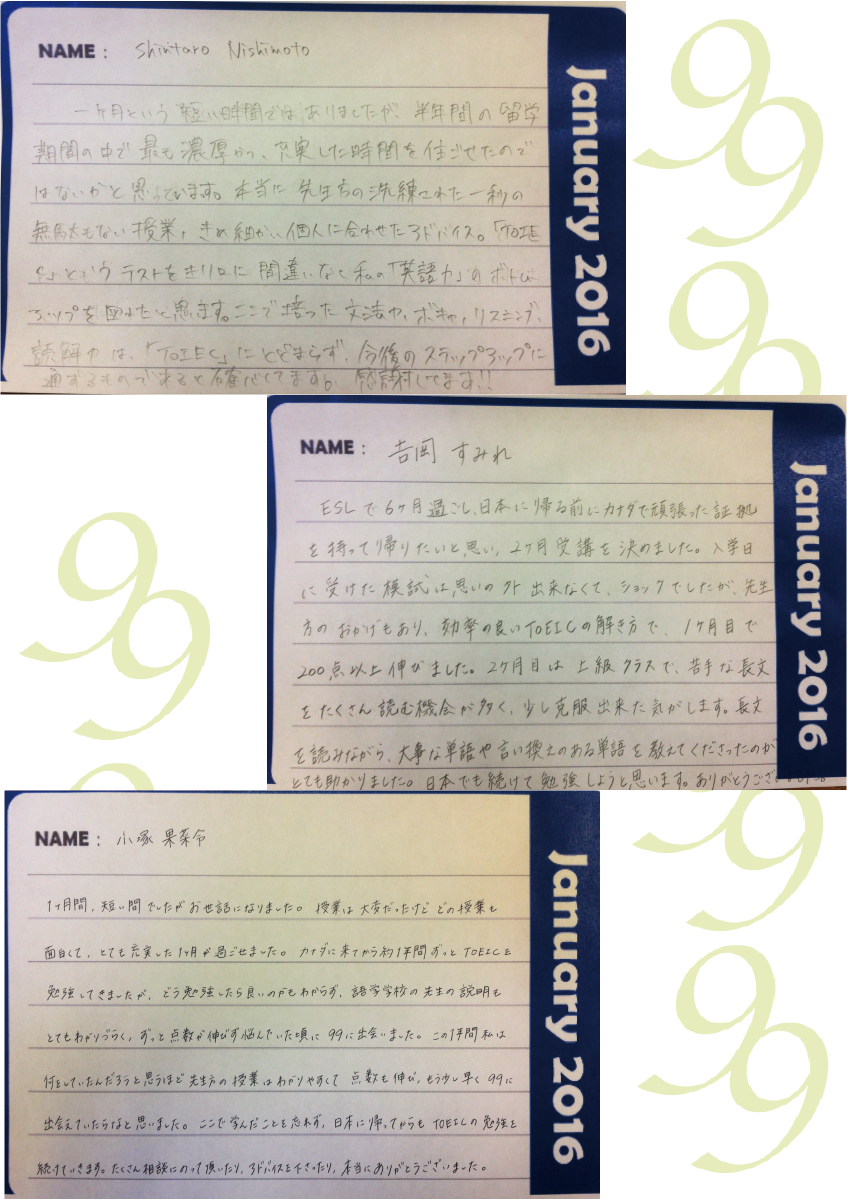 NAME : Shintaro Nishimoto
一ヶ月という短い時間ではありましたが、半年間の留学
期間の中で最も濃厚かつ、充実した時間を過ごせたので
はないかと思っています。本当に先生方の洗練された一秒の
無駄もない授業、きめ細かい個人に合わせたアドバイス。「TOIE
C」というテストをきり口に間違いなく私の「英語力」のボトム
アップを図れたと思います。ここで培った文法力、ボキャ、リスニング、
読解力は、「TOIEC」にとどまらず、今後のステップアップに
通ずるものであると確信してます。感謝してます!!
January 2016
99
NAME : 吉岡 すみれ
ESLで6ヶ月過ごし、日本に帰る前にカナダで頑張った証拠
を持って帰りたいと思い、2ヶ月受講を決めました。入学日
に受けた模試は、思いの外出来なくて、ショックでしたが、先生
方のおかげもあり、効率の良いTOEICの解き方で、1ヶ月目で
200点以上伸びました。2ヶ月目は上級クラスで、苦手な長文
をたくさん読む機会が多く、少し克服出来た気がします。長文
を読みながら、大事な単語や言い換えのある単語を教えてくださったのが
とても助かりました。日本でも続けて勉強しようと思います。ありがとうござ
January 2016
99
NAME : 小塚 果菜令
1ヶ月間、短い間でしたがお世話になりました。授業は大変だったけどどの授業も
面白くて、とても充実した1ヶ月が過ごせました。カナダに来てから約1年間ずっとTOEICを
勉強してきましたが、どう勉強したら良いのかもわからず、語学学校の先生の説明も
とてもわかりづらく、ずっと点数が伸びず悩んでいた頃に99に出会いました。この1年間私は
何をしていたんだろうと思うほど先生方の授業はわかりやすくて点数も伸び、もう少し早く99に
出会えていたらなと思いました。ここで学んだことを忘れず、日本に帰ってからもTOEICの勉強を
続けていきます。たくさん相談にのって頂いたり、アドバイスを下さったり、本当にありがとうございました。
January 2016
99
99